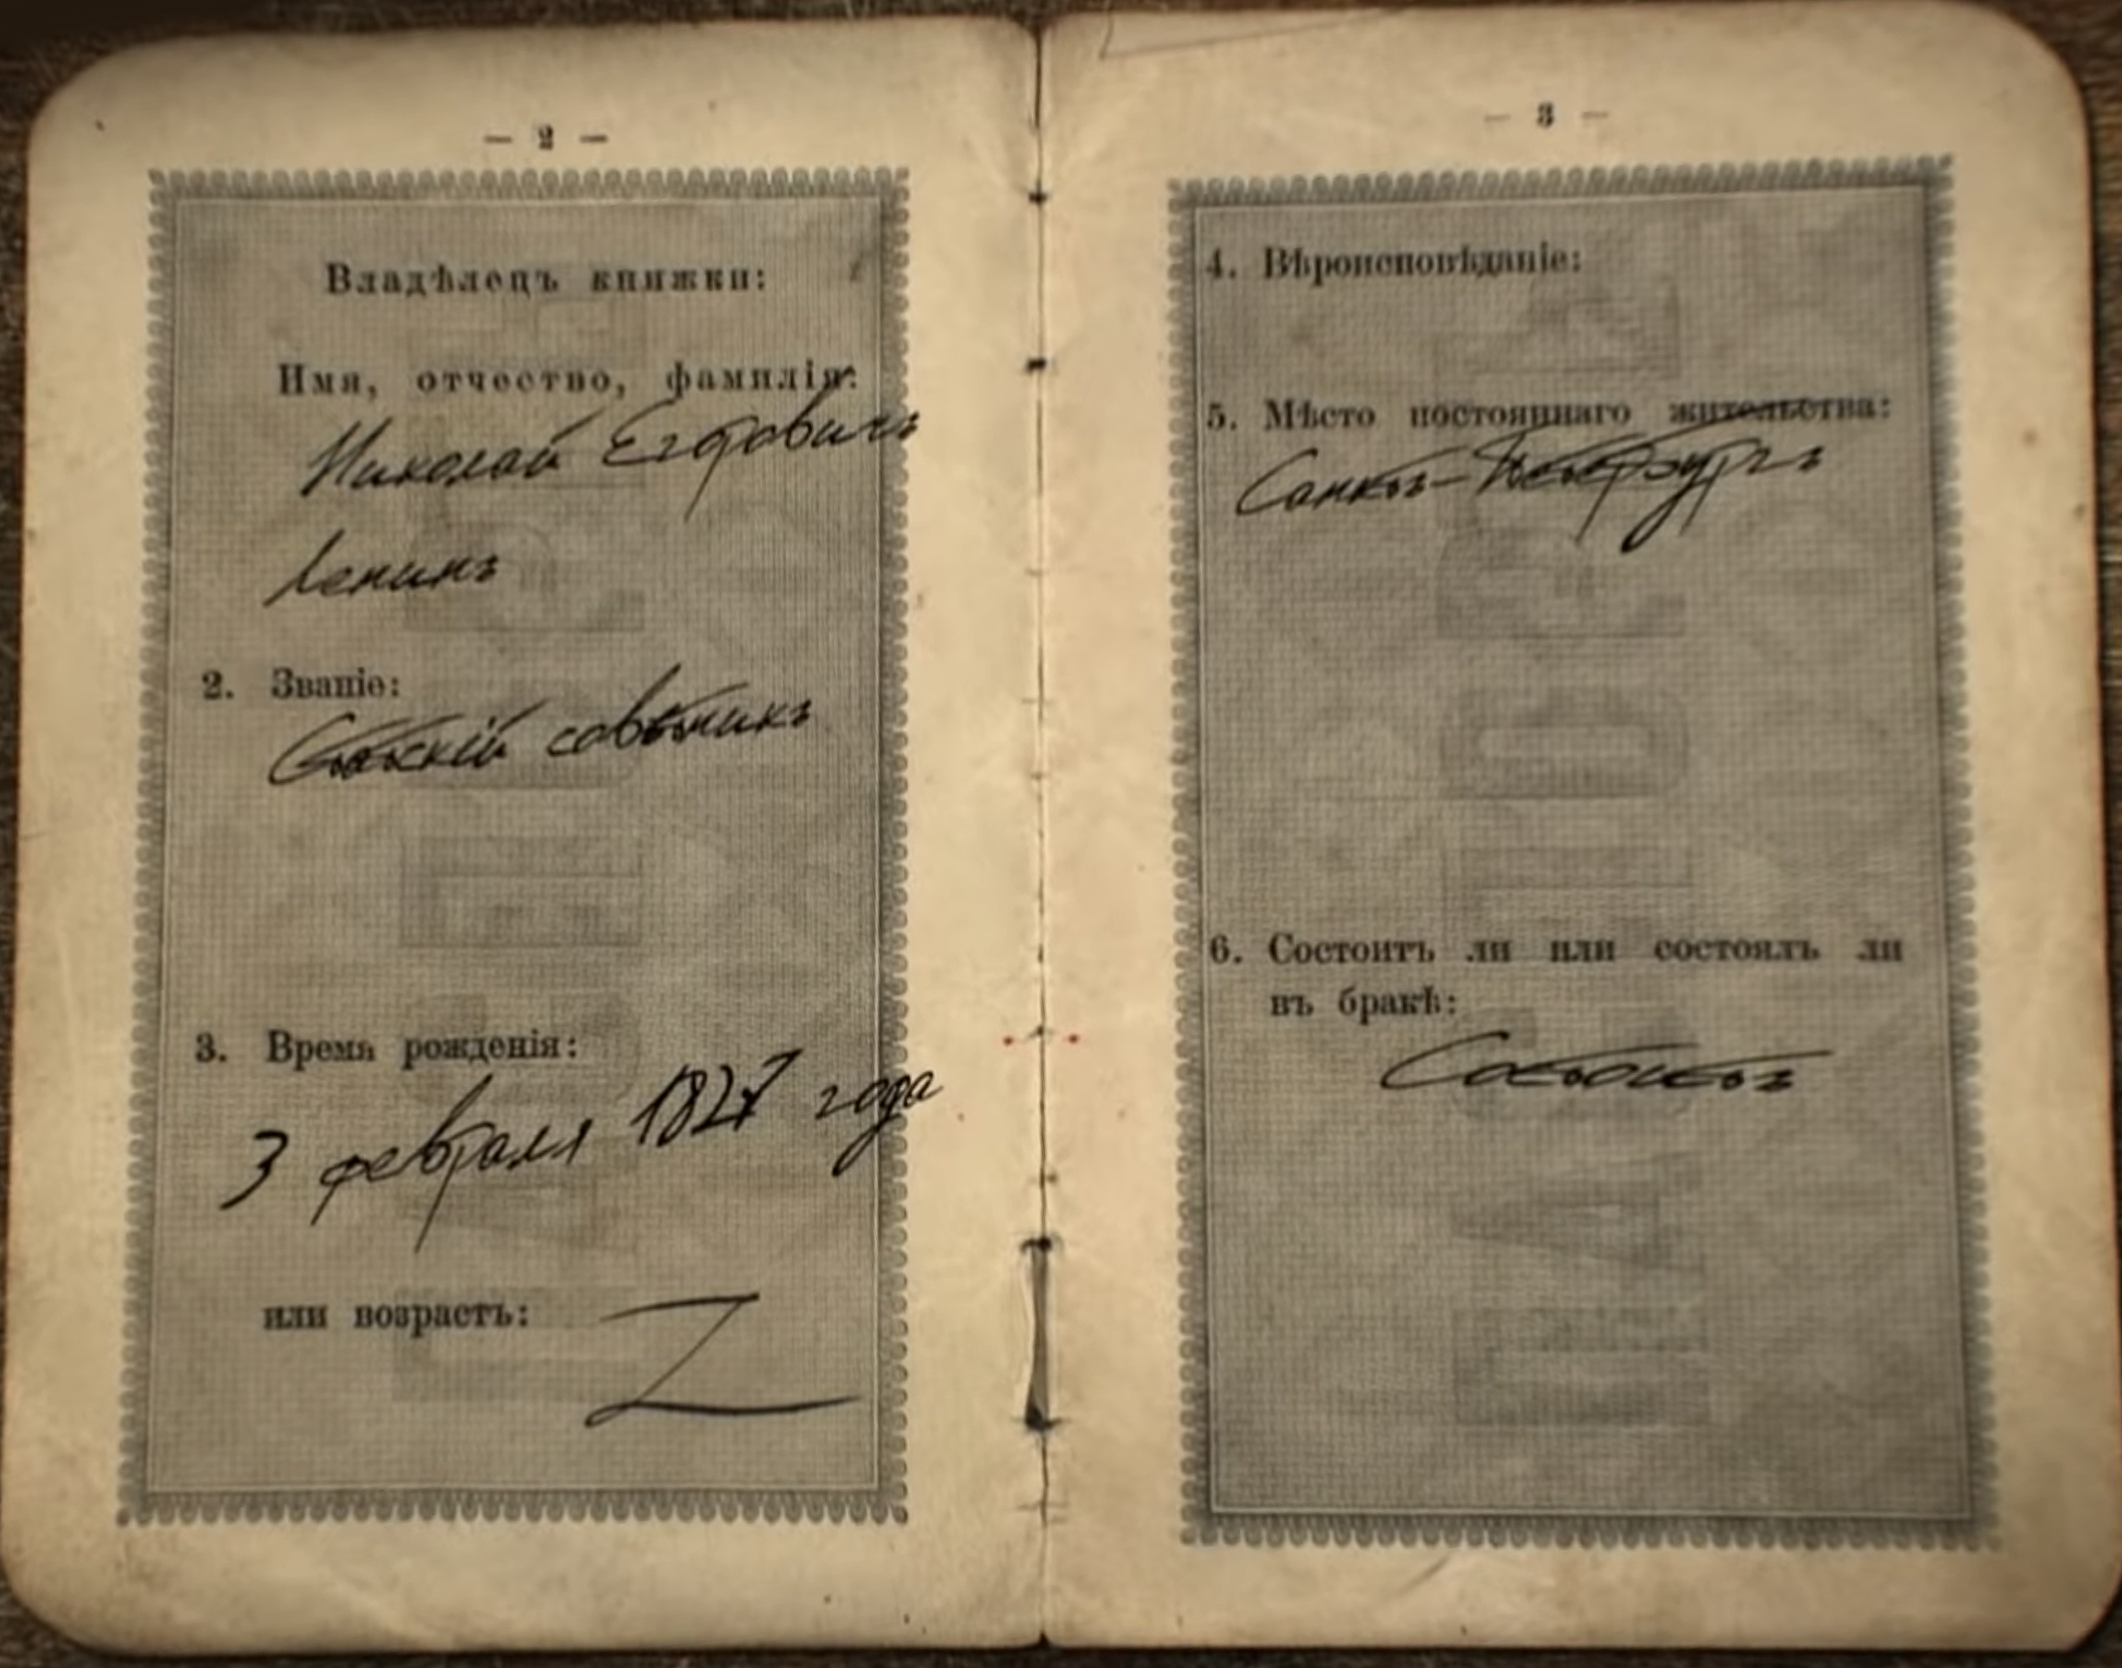 — 2 —
Владѣлецъ книжки:
Имя, отчество, фамилія:
Николай Егоровичъ
Ленинъ
2. Званіе:
Статскій совѣтникъ
3. Время рожденія:
3 февраля 1827 года
или возрастъ:
— 3 —
4. Вѣроисповѣданіе:
5. Мѣсто постояннаго жительства:
Санктъ-Петербургъ
6. Состоитъ ли или состоялъ ли
въ бракѣ:
Состоитъ